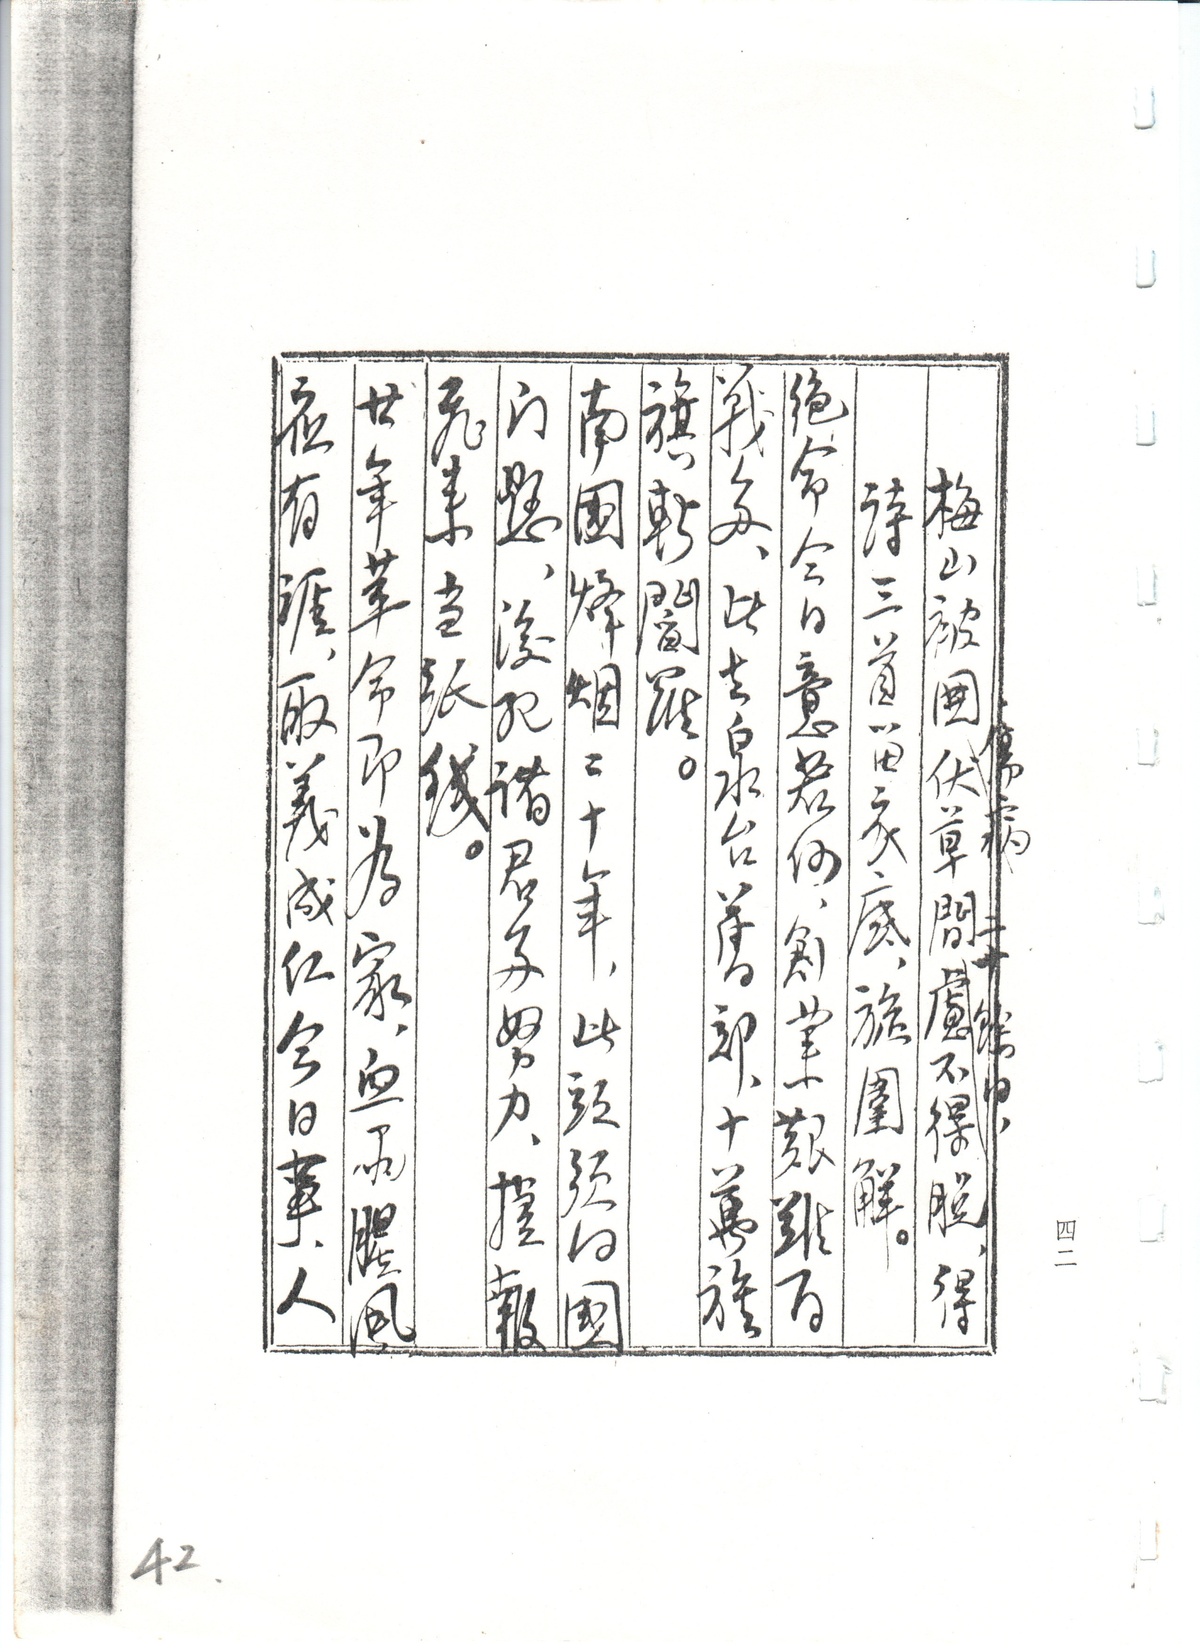 梅山被围伏草間慮不得脱、得
傷病
二十餘日、
詩三首留衣底、旋圍解。
絶命今日意若何、創業艱難百
戰多、此去泉台舊部、十萬旌
旗斬閻羅。
南國烽烟二十年，此頭須向國
门懸、後死諸君多努力、捷報
飛来当紙钱。
廿年革命即为家、血雨腥風
应有涯、取義成仁今日事、人
四二
42